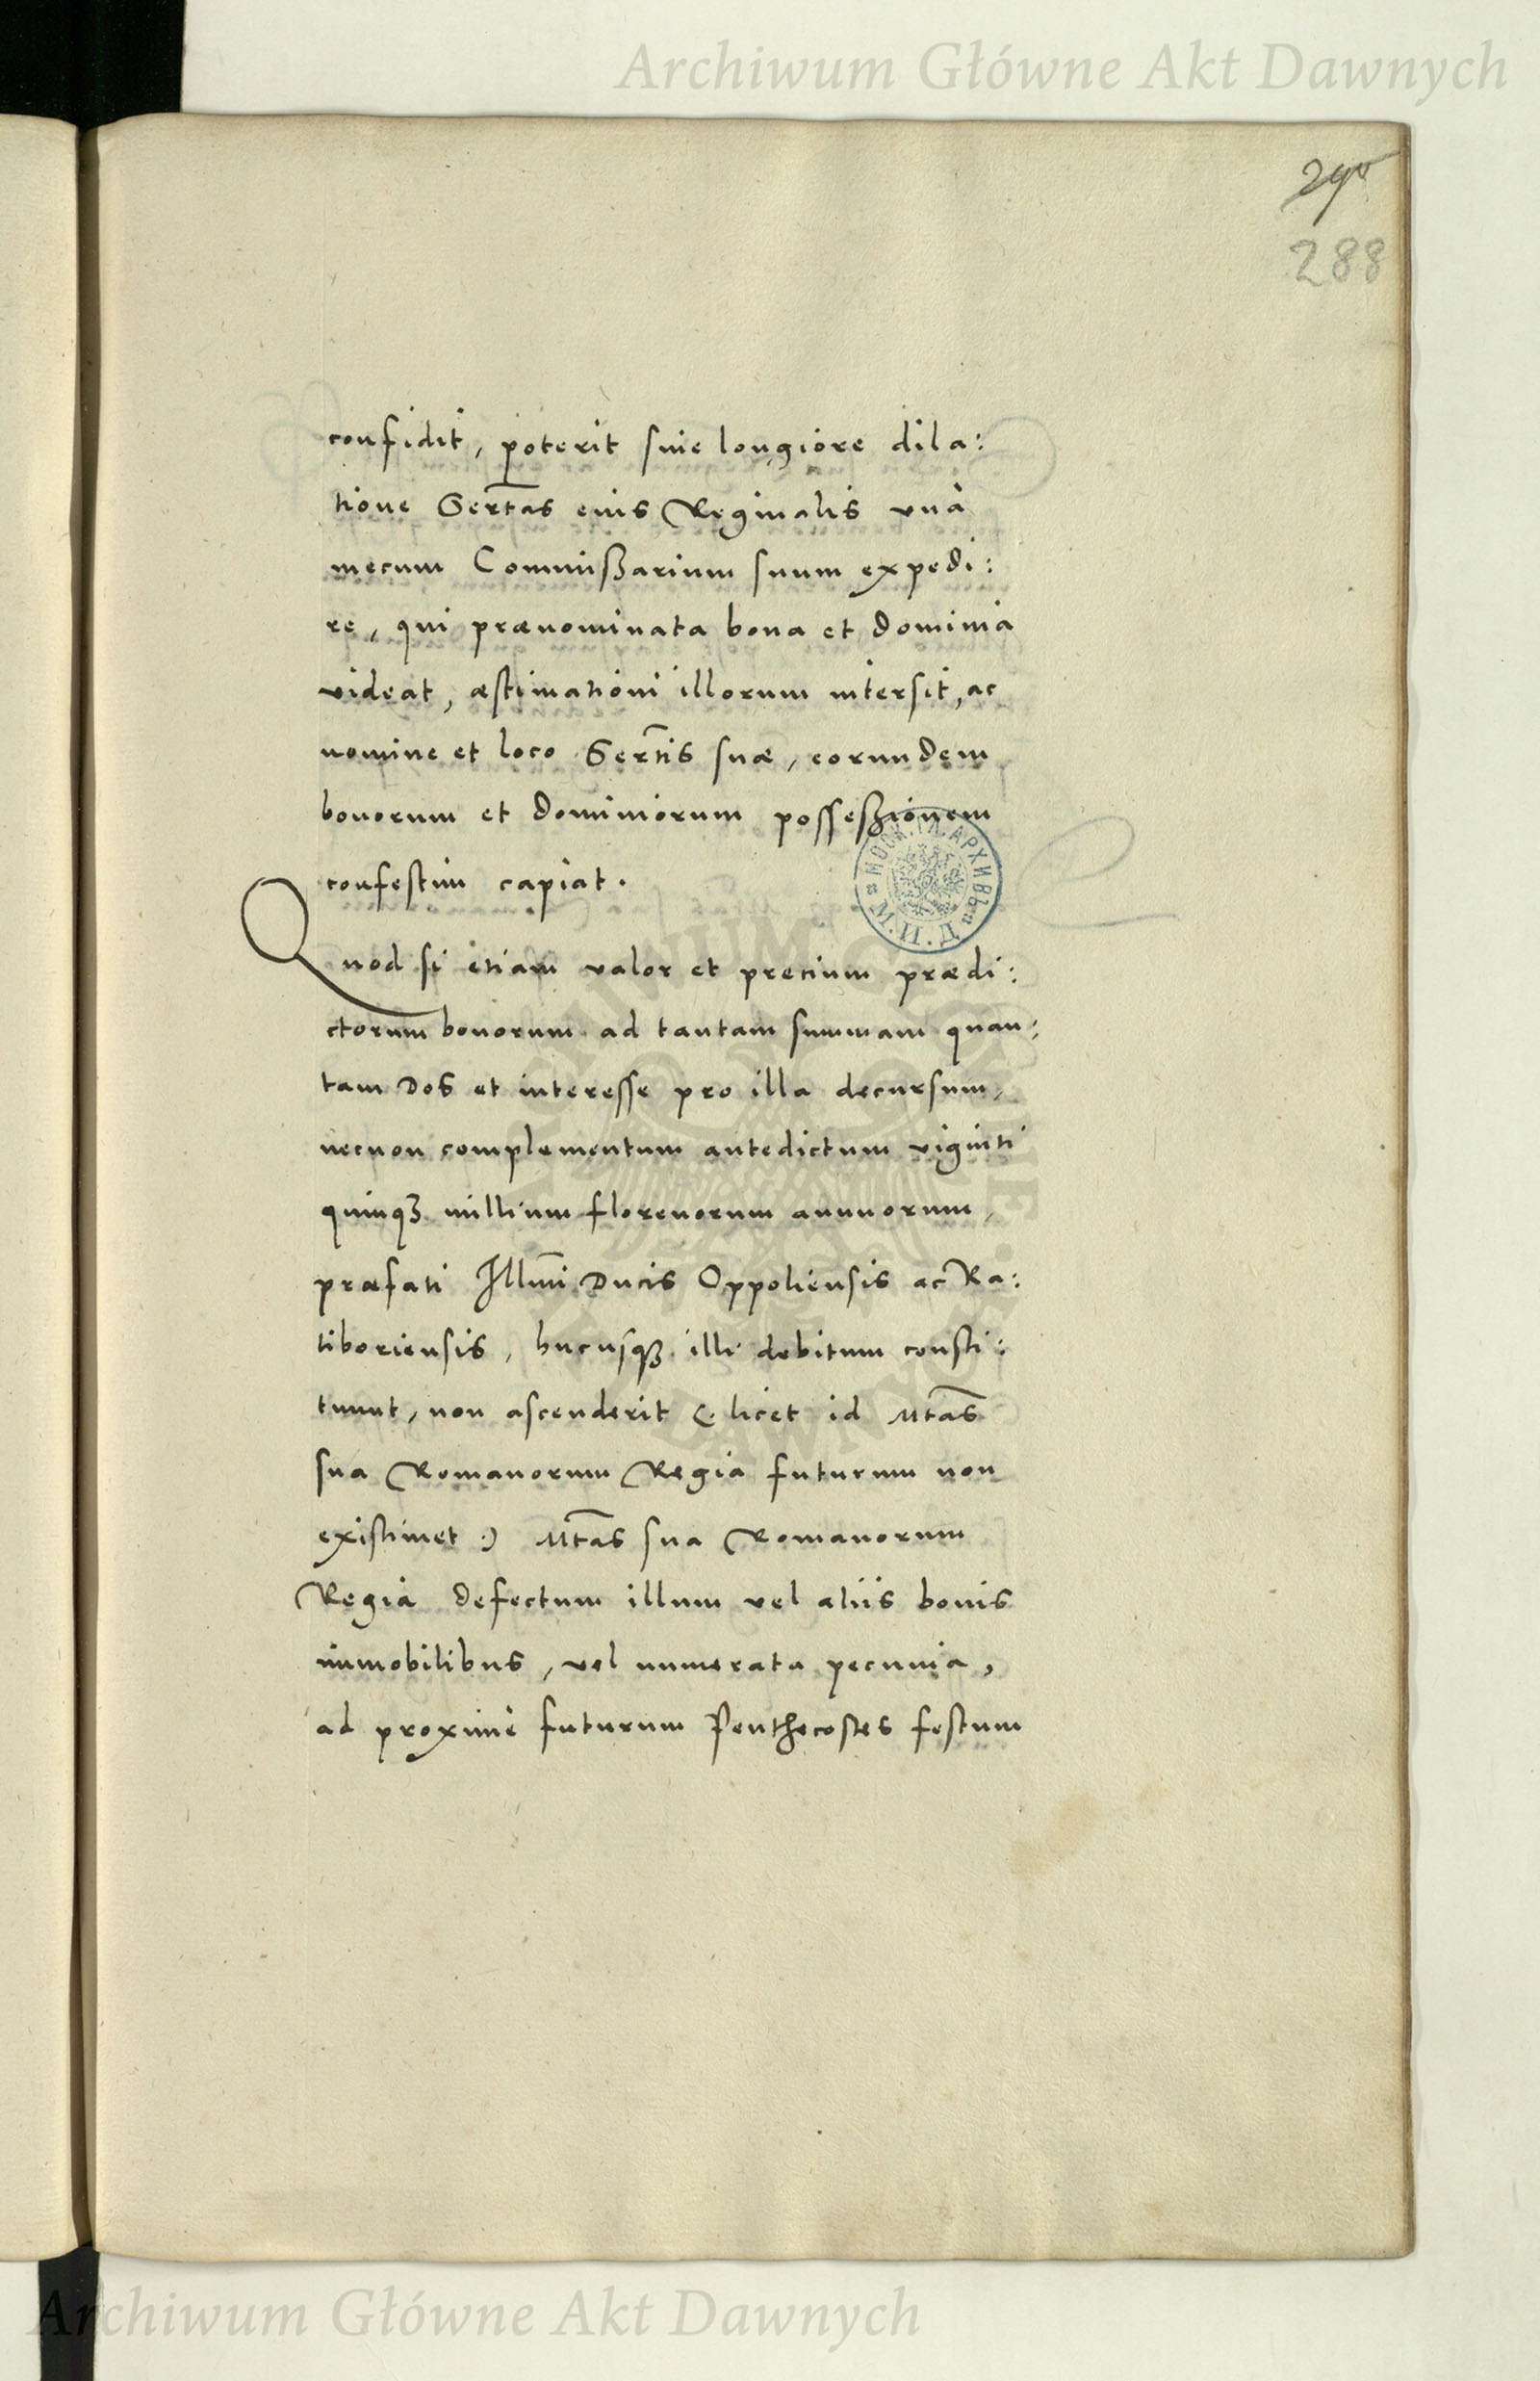 Archiwum Główne Akt Dawnych
290
288
confidit, poterit sine longiore dila:
tione Sertas eius Reginalis unà
mecum Commissarium suum expedi:
re, qui prænominata bona et dominia
videat, æstimationi illorum intersit, ac
nomine et loco Sertis suæ, eorundem
bonorum et dominiorum possessionem
confestim capiat.
Quod si etiam valor et precium prædi:
ctorum bonorum ad tantam summam quan:
tam Dos et interesse pro illa decursum,
necnon complementum antedictum viginti
quinqꝫ millium florenorum annuorum,
præfati Illmi Ducis Oppoliensis ac Ra:
tiboriensis, hucusqꝫ illi debitum consti:
tuunt, non ascenderit (licet id Mtas
sua Romanorum Regia futurum non
existimet) Mtas sua Romanorum
Regia defectum illum vel aliis bonis
immobilibus, vel numerata pecunia,
ad proximè futurum Penthecostes festum
Archiwum Główne Akt Dawnych